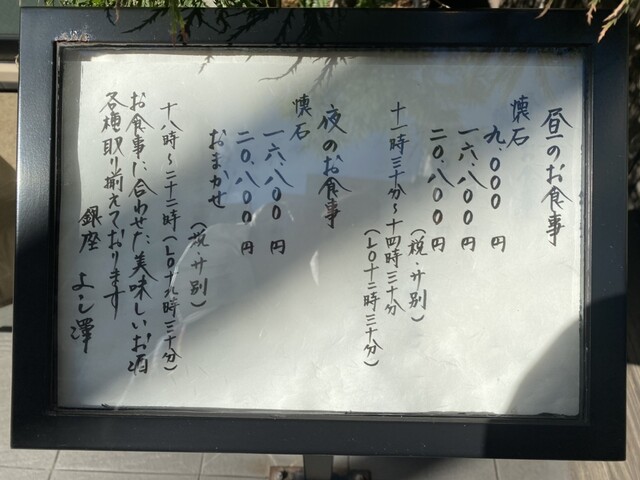 昼のお食事
懐石
九.〇〇〇円
一六.八〇〇円
二〇.八〇〇円
(税・サ別)
十一時三十分〜十四時三十分
(LO十二時三十分)
夜のお食事
懐石
一六.八〇〇円
二〇.八〇〇円
おまかせ
(税・サ別)
十八時〜二十二時(LO十九時三十分)
お食事に合わせた美味しいお酒
各種取り揃えております
銀座 よし澤